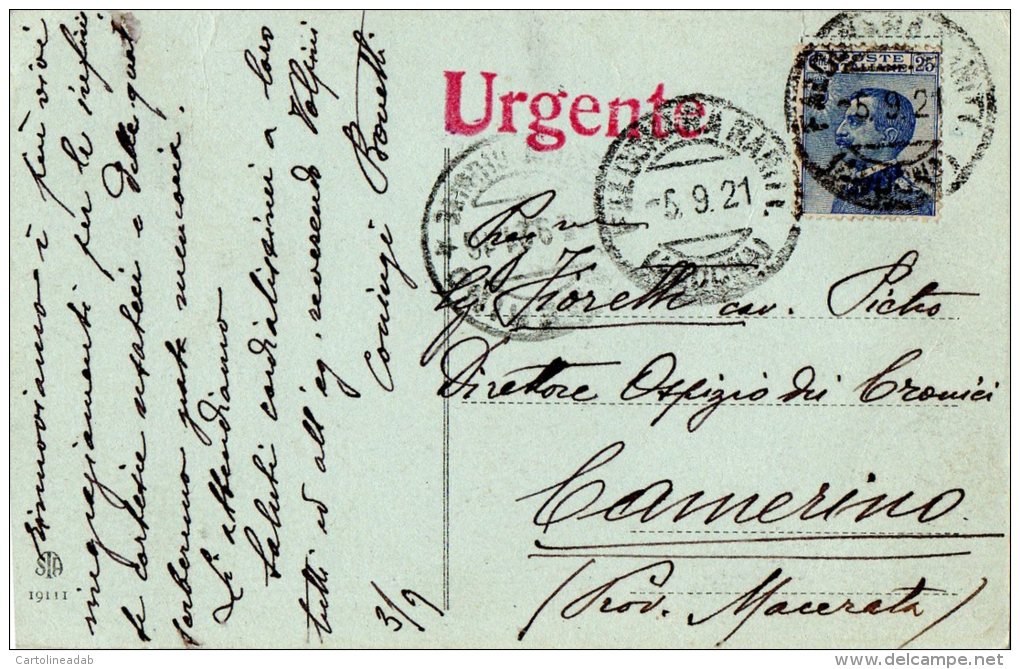 Rinnoviamo i più vivi
ringraziamenti per le infini
te cortesie usateci e delle quali
serberemo grata memoria.
Li attendiamo
Saluti cordialissimi a loro
tutti ed all' eg. reverendo Volpini
Coniugi Bonetti
3/9
STA
19111
Urgente
POSTE
ITALIANE
25
5.9.21
5.9.21
Sig. Fioretti cav. Pietro
Direttore Ospizio dei Cronici
Camerino
(Prov. Macerata)
Cartolineadab
delcampe.net